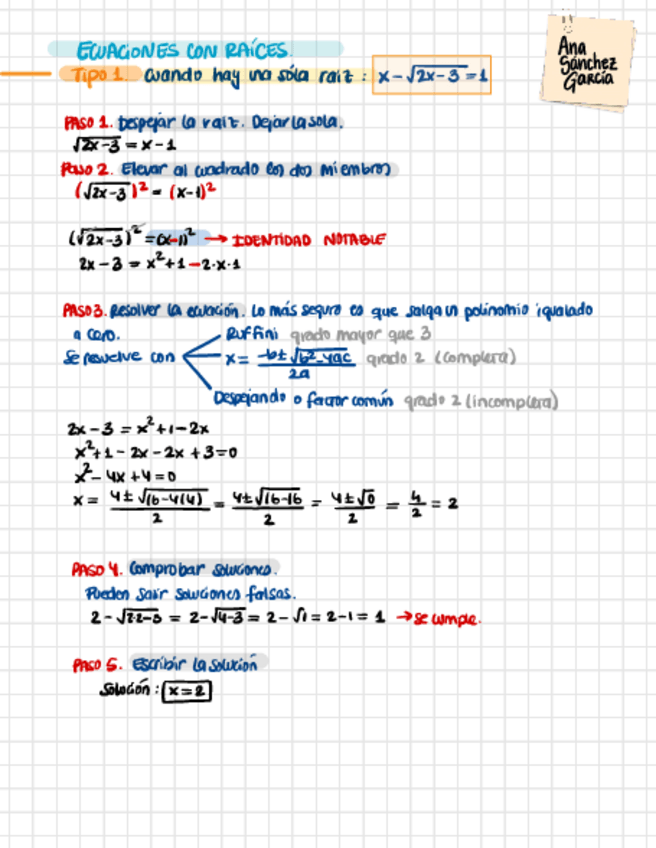 ECUACIONES CON RAÍCES.
Ana
Sánchez
García
Tipo 1. cuando hay una sóla raíz : x-√2x-3=1
PASO 1. Despejar la raiz. Dejarla sola.
√2x-3 = x-1
Paso 2. Elevar al cuadrado los dos miembros
(√2x-3)² = (x-1)²
(√2x-3)² = (x-1)² → IDENTIDAD NOTABLE
2x-3 = x²+1-2·x·1
PASO 3. Resolver la ecuación. Lo más seguro es que salga un polinomio igualado
a cero.
Ruffini grado mayor que 3
Se resuelve con x = -b±√b²-4ac / 2a grado 2 (completa)
Despejando o factor común grado 2 (incompleta)
2x-3 = x²+1-2x
x²+1-2x-2x+3=0
x²-4x+4=0
x = 4±√16-4(4) / 2 = 4±√16-16 / 2 = 4±√0 / 2 = 4/2 = 2
PASO 4. Comprobar soluciones.
Pueden salir soluciones falsas.
2-√2·2-3 = 2-√4-3 = 2-√1 = 2-1 = 1 → Se cumple.
PASO 5. Escribir la solución
Solución : x=2